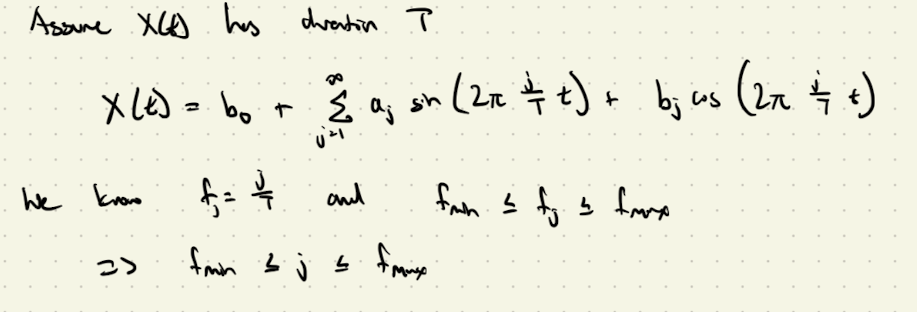 Assume X(t) has duration T
X(t) = b₀ + ∑_{j=1}^{∞} a_j sin (2π j/T t) + b_j cos (2π j/T t)
We know f_j = j/T and f_min ≤ f_j ≤ f_max
=> f_min ≤ j ≤ f_max